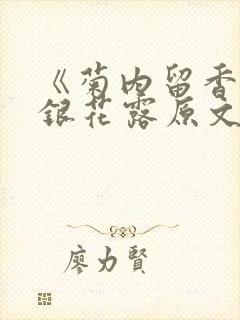 《菊内留香
銀花露原文
廖力賢